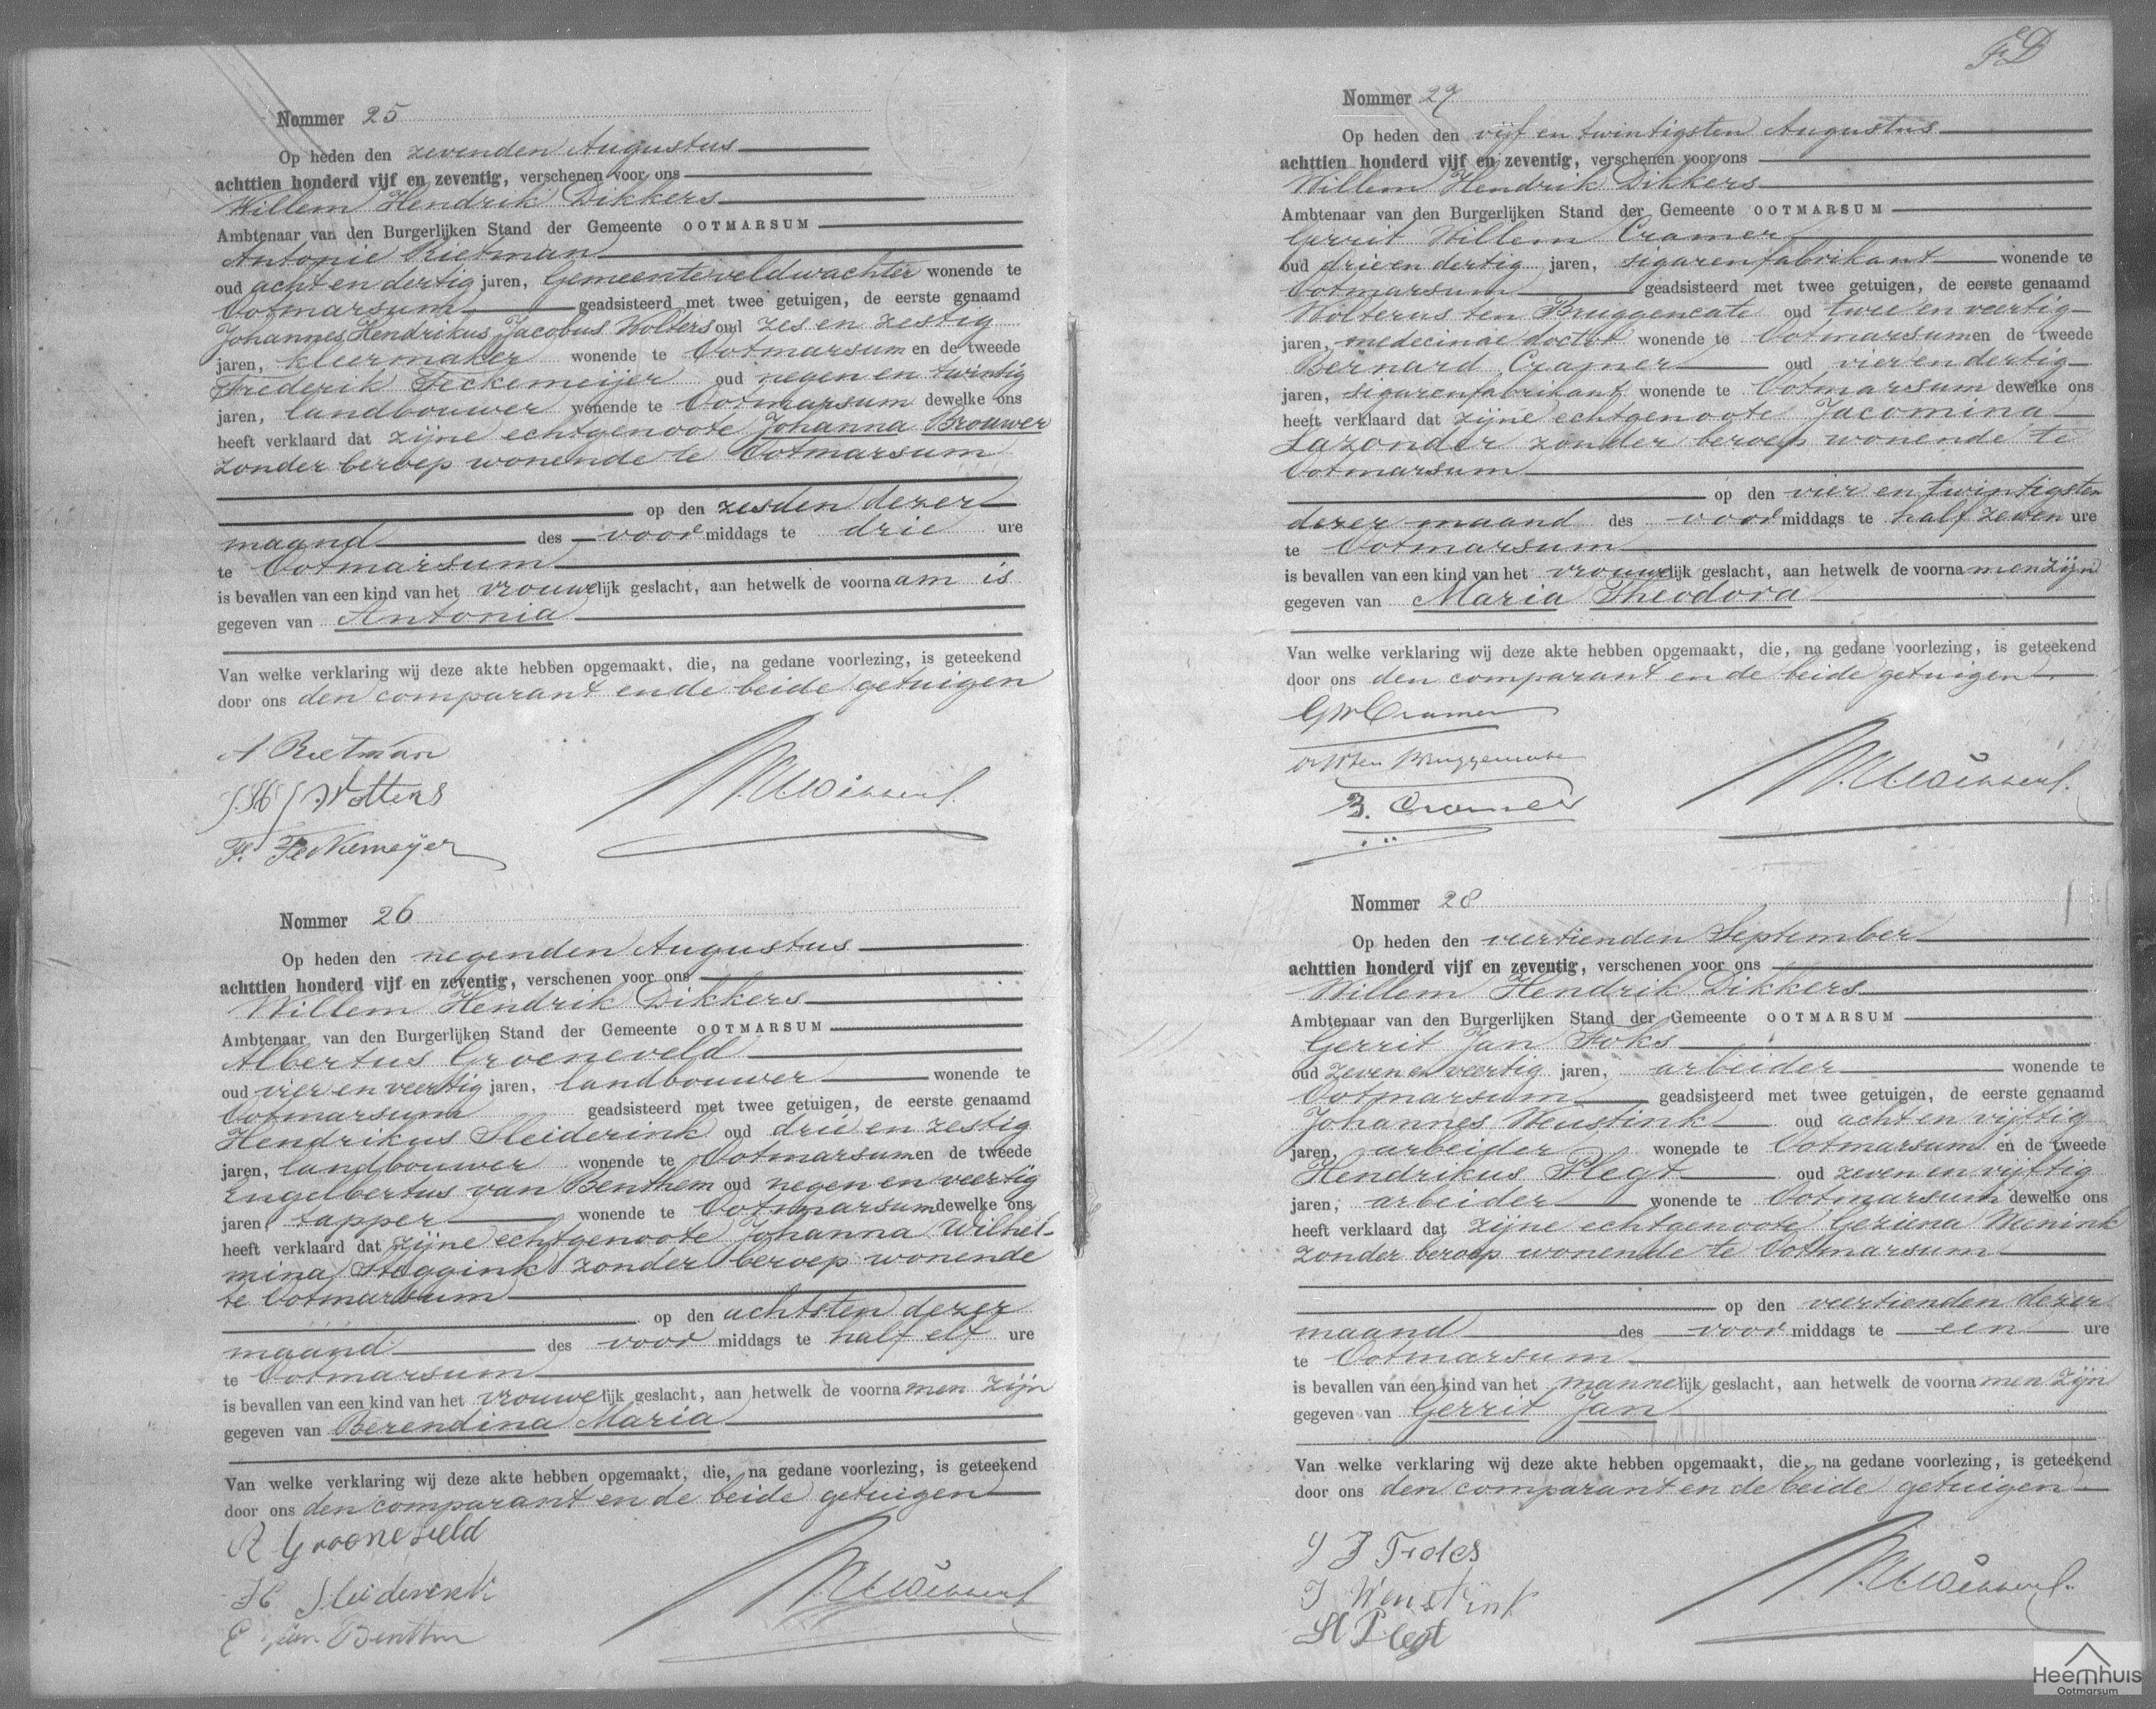 Nommer 25
Op heden den zevenden Augustus
achttien honderd vijf en zeventig, verschenen voor ons
Willem Hendrik Dikkers
Ambtenaar van den Burgerlijken Stand der Gemeente OOTMARSUM
Antonie Rietman
oud acht en dertig jaren, Gemeenteveldwachter wonende te
Ootmarsum geadsisteerd met twee getuigen, de eerste genaamd
Johannes Hendrikus Jacobus Wolters oud zes en zestig
jaren, kleermaker wonende te Ootmarsum en de tweede
Frederik Feckemeijer oud negen en twintig
jaren, landbouwer wonende te Ootmarsum dewelke ons
heeft verklaard dat zijne echtgenoote Johanna Brouwer
zonder beroep wonende te Ootmarsum
op den zesden dezer
maand des voormiddags te drie ure
te Ootmarsum
is bevallen van een kind van het vrouwelijk geslacht, aan hetwelk de voornaam is
gegeven van Antonia
Van welke verklaring wij deze akte hebben opgemaakt, die, na gedane voorlezing, is geteekend
door ons den comparant en de beide getuigen
A Rietman
J H J Wolters
F. Fekkemeÿer
Nommer 26
Op heden den negenden Augustus
achttien honderd vijf en zeventig, verschenen voor ons
Willem Hendrik Dikkers
Ambtenaar van den Burgerlijken Stand der Gemeente OOTMARSUM
Albertus Groeneveld
oud vier en veertig jaren, landbouwer wonende te
Ootmarsum geadsisteerd met twee getuigen, de eerste genaamd
Hendrikus Sleiderink oud drie en zestig
jaren, landbouwer wonende te Ootmarsum en de tweede
Engelbertus van Benthem oud negen en veertig
jaren tapper wonende te Ootmarsum dewelke ons
heeft verklaard dat zijne echtgenoote Johanna Wilhel-
mina Steggink zonder beroep wonende
te Ootmarsum
op den achtsten dezer
maand des voor middags te half elf ure
te Ootmarsum
is bevallen van een kind van het vrouwelijk geslacht, aan hetwelk de voornamen zijn
gegeven van Berendina Maria
Van welke verklaring wij deze akte hebben opgemaakt, die, na gedane voorlezing, is geteekend
door ons den comparant en de beide getuigen
A Groeneveld
H Sleiderink
E van Benthem
Nommer 27
Op heden den vijf en twintigsten Augustus
achttien honderd vijf en zeventig, verschenen voor ons
Willem Hendrik Dikkers
Ambtenaar van den Burgerlijken Stand der Gemeente OOTMARSUM
Gerrit Willem Cramer
oud drie en dertig jaren, sigarenfabrikant wonende te
Ootmarsum geadsisteerd met twee getuigen, de eerste genaamd
Wolterus ten Bruggencate oud twee en veertig
jaren, medecinae doctor wonende te Ootmarsum en de tweede
Bernard Cramer oud vier en dertig
jaren, sigarenfabrikant wonende te Ootmarsum dewelke ons
heeft verklaard dat zijne echtgenoote Jacomina
Lazonder zonder beroep wonende te
Ootmarsum
op den vier en twintigsten
dezer maand des voormiddags te half zeven ure
te Ootmarsum
is bevallen van een kind van het vrouwelijk geslacht, aan hetwelk de voornamen zijn
gegeven van Maria Theodora
Van welke verklaring wij deze akte hebben opgemaakt, die, na gedane voorlezing, is geteekend
door ons den comparant en de beide getuigen
GWCramer
W ten Bruggencate
B. Cramer
Nommer 28
Op heden den veertienden September
achttien honderd vijf en zeventig, verschenen voor ons
Willem Hendrik Dikkers
Ambtenaar van den Burgerlijken Stand der Gemeente OOTMARSUM
Gerrit Jan Foks
oud zeven en veertig jaren, arbeider wonende te
Ootmarsum geadsisteerd met twee getuigen, de eerste genaamd
Johannes Weustink oud acht en vijftig
jaren, arbeider wonende te Ootmarsum en de tweede
Hendrikus Plegt oud zeven en vijftig
jaren, arbeider wonende te Ootmarsum dewelke ons
heeft verklaard dat zijne echtgenoote Geziena Wenink
zonder beroep wonende te Ootmarsum
op den veertienden dezer
maand des voormiddags te een ure
te Ootmarsum
is bevallen van een kind van het mannelijk geslacht, aan hetwelk de voornamen zijn
gegeven van Gerrit Jan
Van welke verklaring wij deze akte hebben opgemaakt, die, na gedane voorlezing, is geteekend
door ons den comparant en de beide getuigen
J Weustink
H Plegt
Heemhuis
Ootmarsum